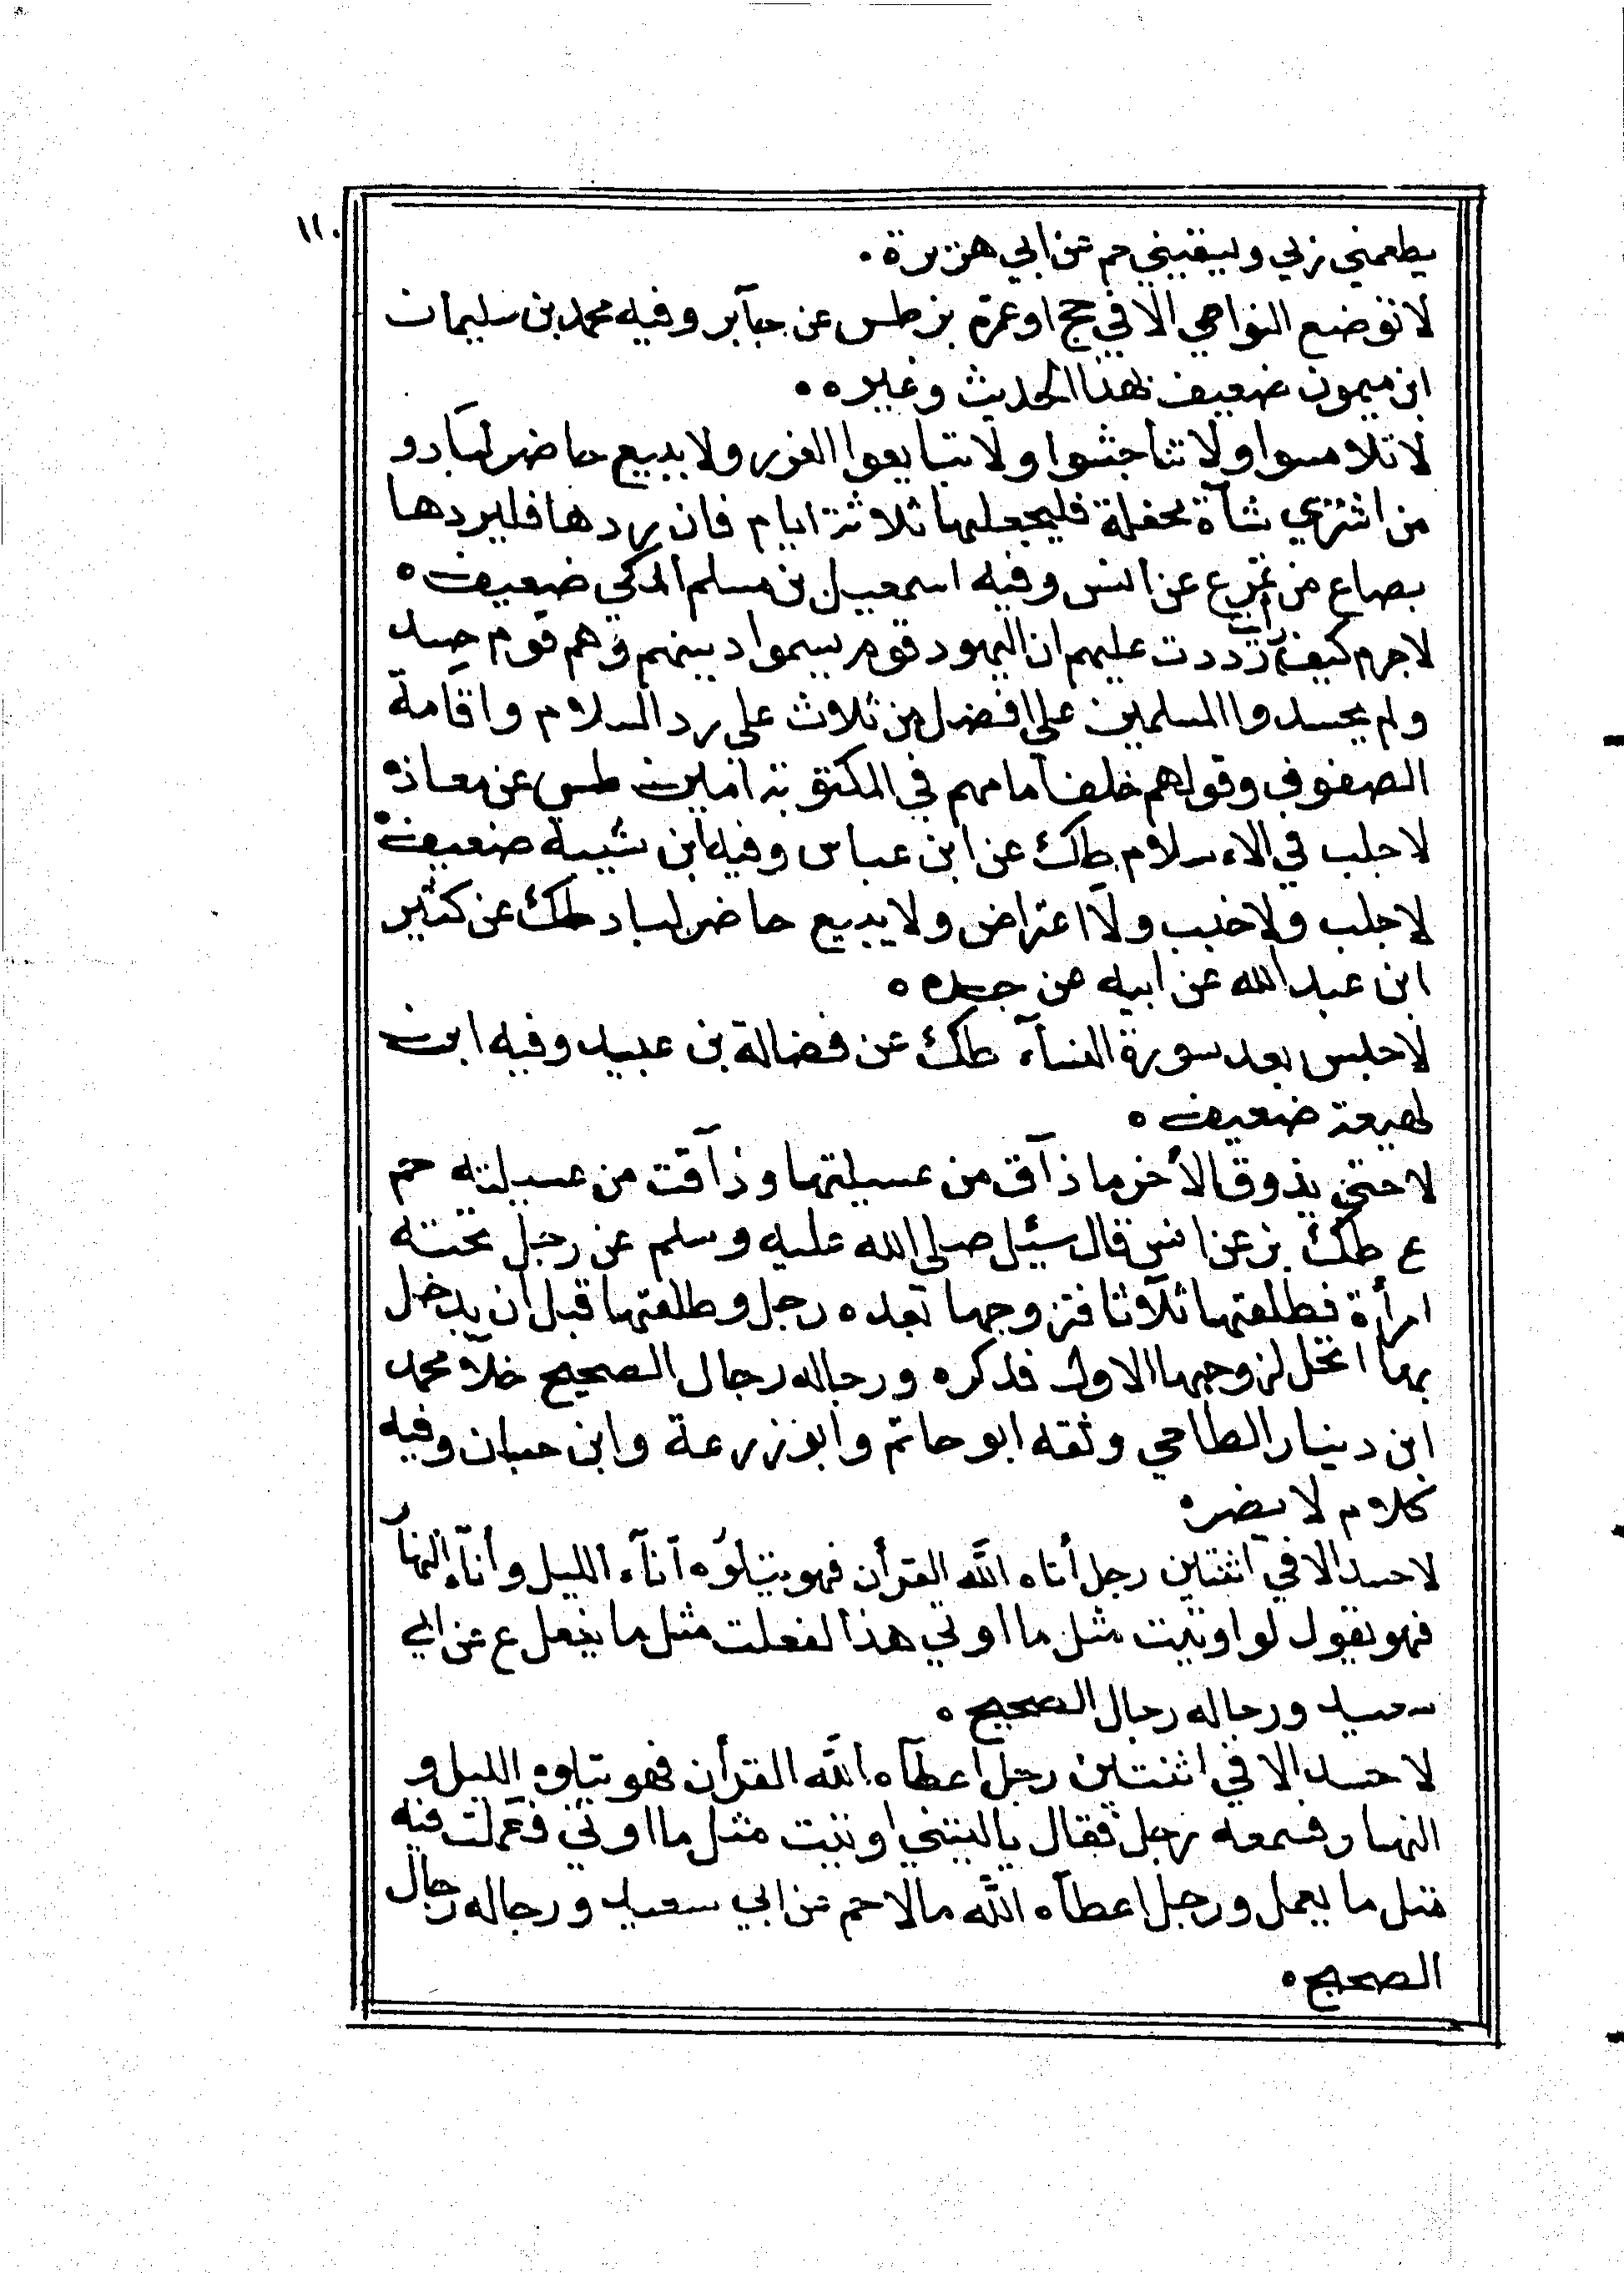 ١١٠
يطعمني ربي ويسقيني حم عن ابي هريرة ۰
لا توضع النواصي الا في حج او عمرة بز طس عن جابر وفيه محمد بن سليمان
ابن ميمون ضعيف بهذا الحديث وغيره ۰
لا تلامسوا ولا تناجشوا ولا تبايعوا الغرر ولا يبيع حاضر لباد و
من اشترى شاة محفلة فليحلبها ثلاثة ايام فان ردها فليردها
بصاع من تمر ع عن انس وفيه اسمعيل بن مسلم المكي ضعيف ۰
لا جرم كيف رأيت رددت عليهم ان اليهود قوم سيموا دينهم وهم قوم حسد
ولم يحسدوا المسلمين على افضل من ثلاث على رد السلام واقامة
الصفوف وقولهم خلف امامهم في المكتوبة امين طس عن معاذ ۰
لا جلب في الاسلام طك عن ابن عباس وفيه ابن شيبة ضعيف ۰
لا جلب ولا خبب ولا اعتراض ولا يبيع حاضر لباد طك عن كثير
ابن عبد الله عن ابيه عن جده ۰
لا حبس بعد سورة النسآء طك عن فضالة بن عبيد وفيه ابن
لهيعة ضعيف ۰
لا حتى يذوق الأخر ما ذاق من عسيلتها وذاقت من عسيلته حم
ع طك بز عن انس قال سئل صلى الله عليه وسلم عن رجل تحته
امرأة فطلقها ثلاثا فتزوجها بعده رجل وطلقها قبل ان يدخل
بها اتحل لزوجها الاول فذكره ورجاله رجال الصحيح خلا محمد
ابن دينار الطاحي وثقه ابو حاتم وابو زرعة وابن حبان وفيه
كلام لا يضر ۰
لا حسد الا في اثنتين رجل أتاه الله القرأن فهو يتلوه آنآء الليل وأنآء النهار
فهو يقول لو اوتيت مثل ما اوتي هذا لفعلت مثل ما يفعل ع عن ابي
سعيد ورجاله رجال الصحيح ۰
لا حسد الا في اثنتين رجل اعطاه الله القرأن فهو يتلوه الليل و
النهار فسمعه رجل فقال ياليتني اوتيت مثل ما اوتي فعملت فيه
مثل ما يعمل ورجل اعطاه الله مالا حم عن ابي سعيد ورجاله رجال
الصحيح ۰